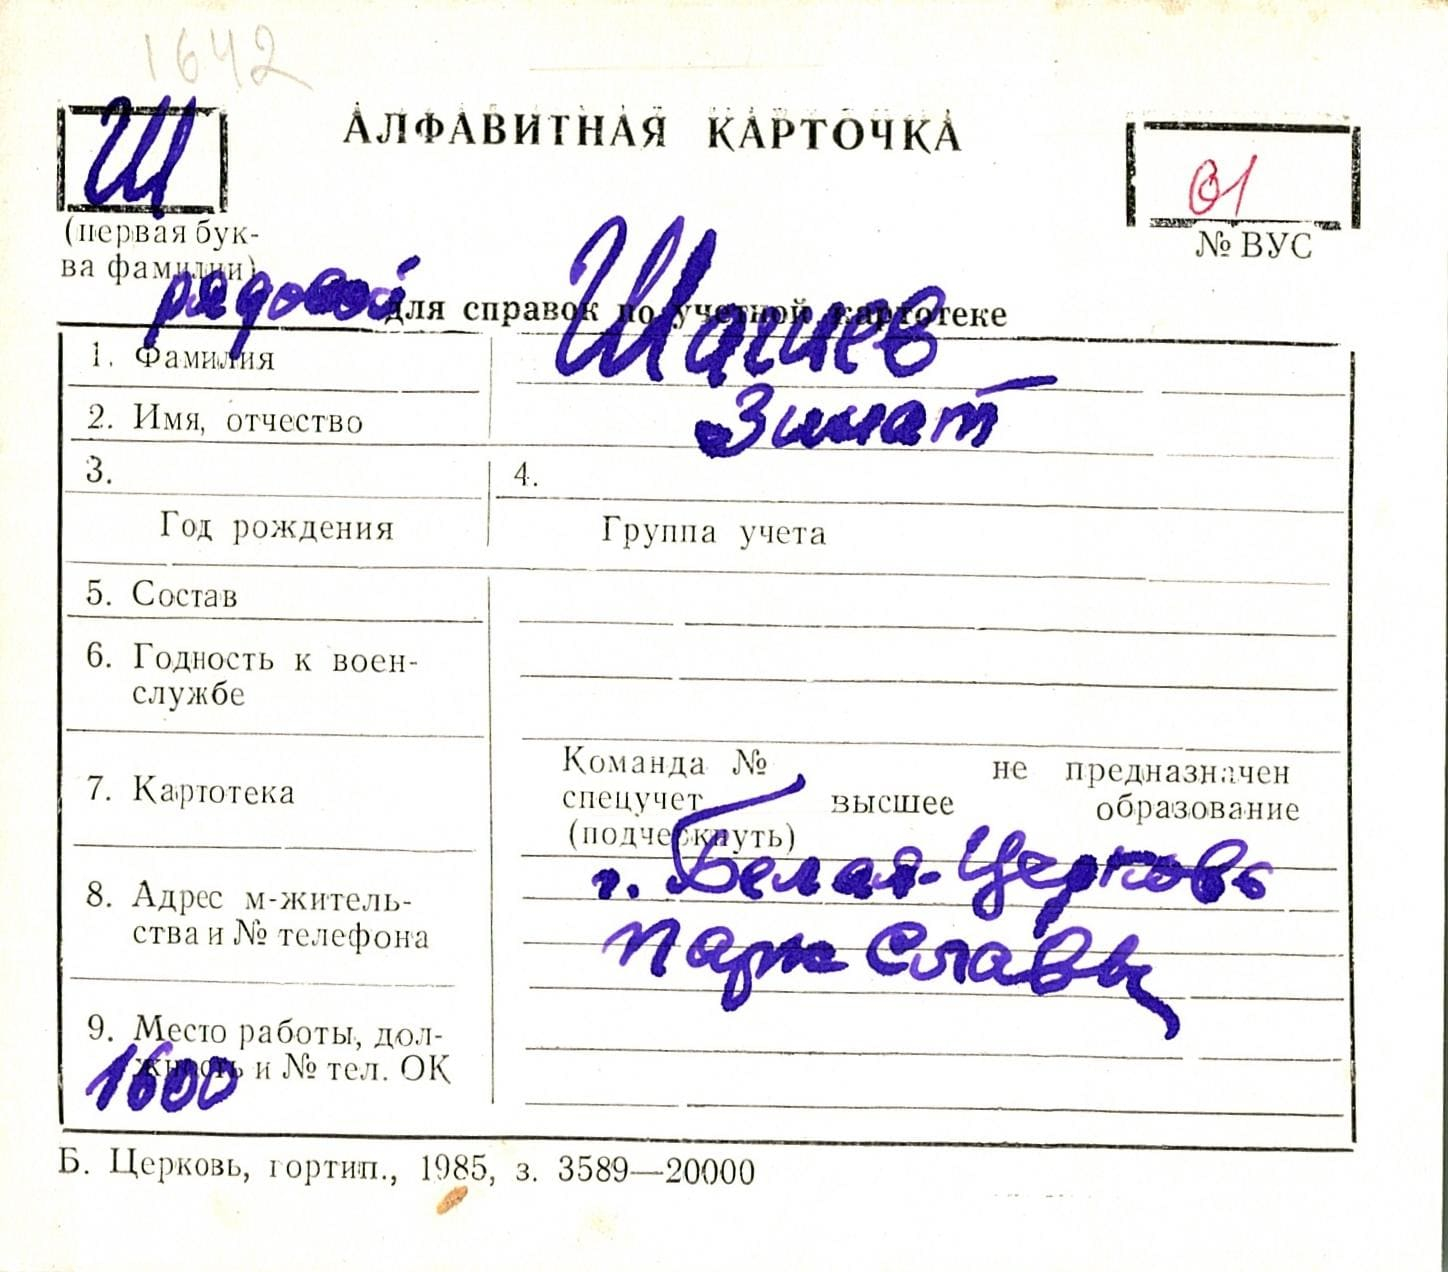 1642
Ш
АЛФАВИТНАЯ КАРТОЧКА
01
(первая бук-
ва фамилии)
№ ВУС
рядовой
для справок по учетной картотеке
1. Фамилия
Шагиев
2. Имя, отчество
Зинат
3.
4.
Год рождения
Группа учета
5. Состав
6. Годность к воен-
службе
7. Картотека
Команда № не предназначен
спецучет высшее образование
(подчеркнуть)
8. Адрес м-житель-
ства и № телефона
г. Белая-Церковь
парк Славы
9. Место работы, дол-
жность и № тел. ОК
1600
Б. Церковь, гортип., 1985, з. 3589—20000